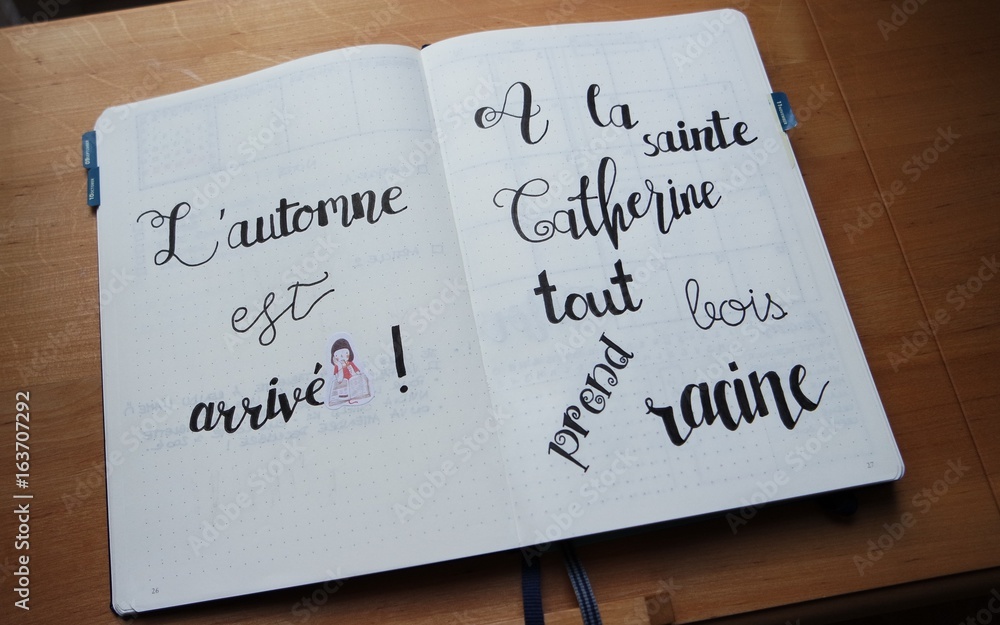 L'automne
est
arrivé !
26
A la
sainte
Catherine
tout bois
prend
racine
27
Adobe Stock | #163707292